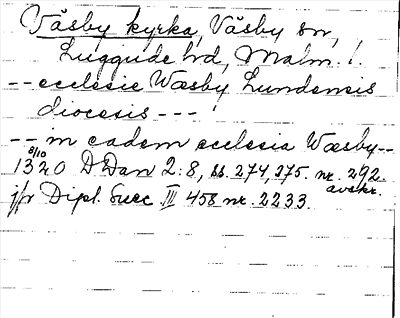 Väsby kyrka, Väsby sn,
Luggude hd, Malm. l.
-- ecclesie Wæsby Lundensis
diocesis ---
-- in eadem ecclesia Wæsby --
8/10
1320 D Dan 2:8, ss. 274, 275. nr. 292.
avskr.
jfr Dipl. Suec. III 458 nr. 2233.